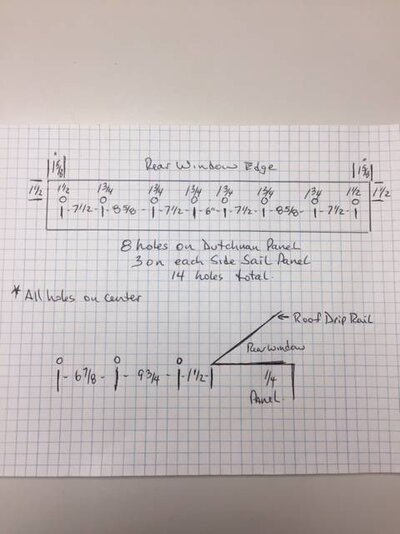 1 5/8 Rear Window Edge 1 5/8
1 1/2 1 1/2 1 3/4 1 3/4 1 3/4 1 3/4 1 3/4 1 3/4 1 1/2 1 1/2
- 7 1/2 - 8 5/8 - 7 1/2 - 6" - 7 1/2 - 8 5/8 - 7 1/2 -
8 holes on Dutchman Panel
3 on each Side Sail Panel
14 holes total.
* All holes on center
← Roof Drip Rail
Rear Window
- 6 7/8 - - 9 3/4 - - 1 1/2 -
1/4
Panel.